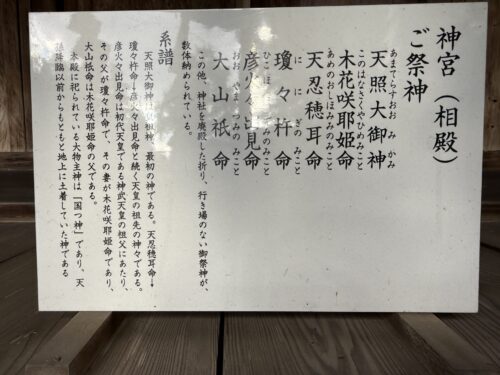 神宮(相殿)
ご祭神
あまてらすおおみかみ
天照大御神
このはなさくやひめみこと
木花咲耶姫命
あめのおしほみみのみこと
天忍穂耳命
ににぎのみこと
瓊々杵命
彦火々出見命
おおやまつみのみこと
大山祇命
この他、神社を廃殿した折り、行き場のない御祭神が、
数体納められている。
系譜
天照大御神は 祖神、最初の神である。天忍穂耳命→
瓊々杵命→彦火々出見命と続く天皇の祖先の神々である。
彦火々出見命は初代天皇である神武天皇の祖父にあたり、
その父が瓊々杵命で、その妻が木花咲耶姫命であり、
大山祇命は木花咲耶姫命の父である。
本殿に祀られている大物主神は「国つ神」であり、天
孫降臨以前からもともと地上に土着していた神である